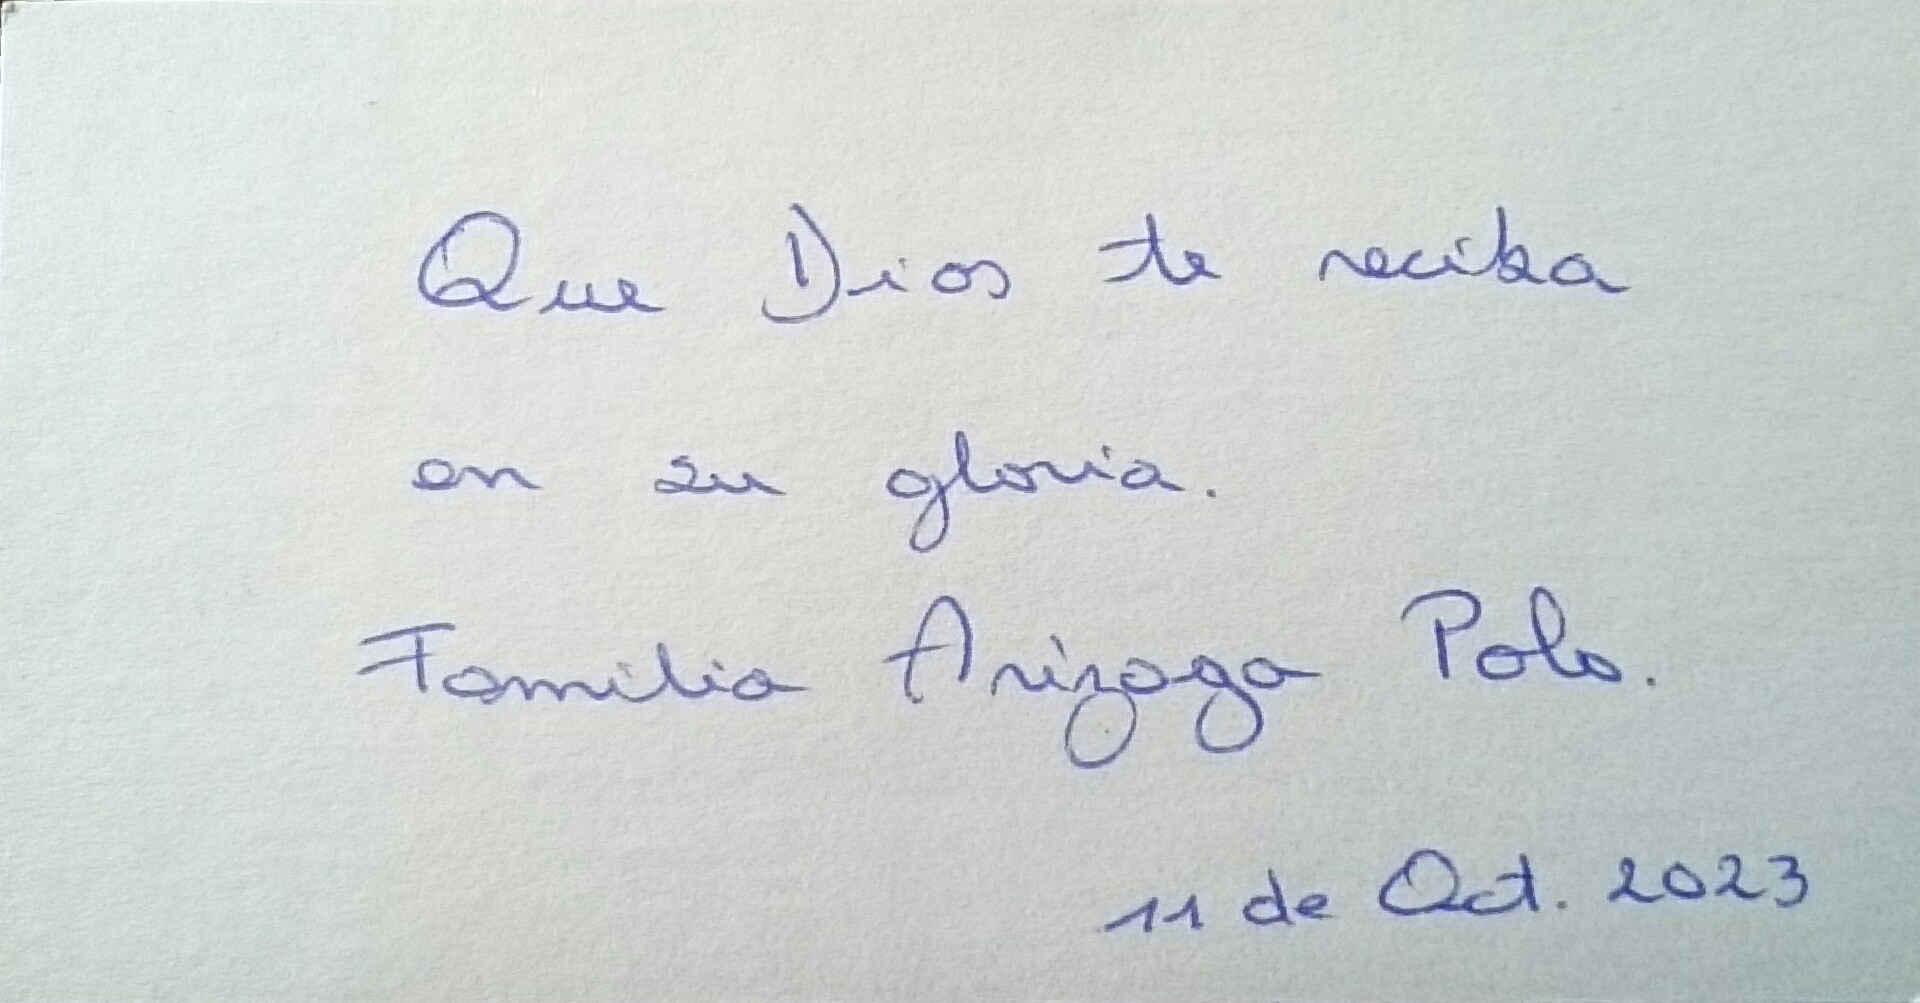 Que Dios te reciba
en su gloria.
Familia Arizaga Polo.
11 de Oct. 2023